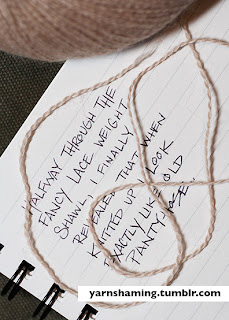 HALFWAY THROUGH THE
FANCY LACE WEIGHT
SHAWL, I FINALLY
REVEALED THAT WHEN
KNITTED UP I LOOK
EXACTLY LIKE OLD
PANTY-HOSE.
yarnshaming.tumblr.com